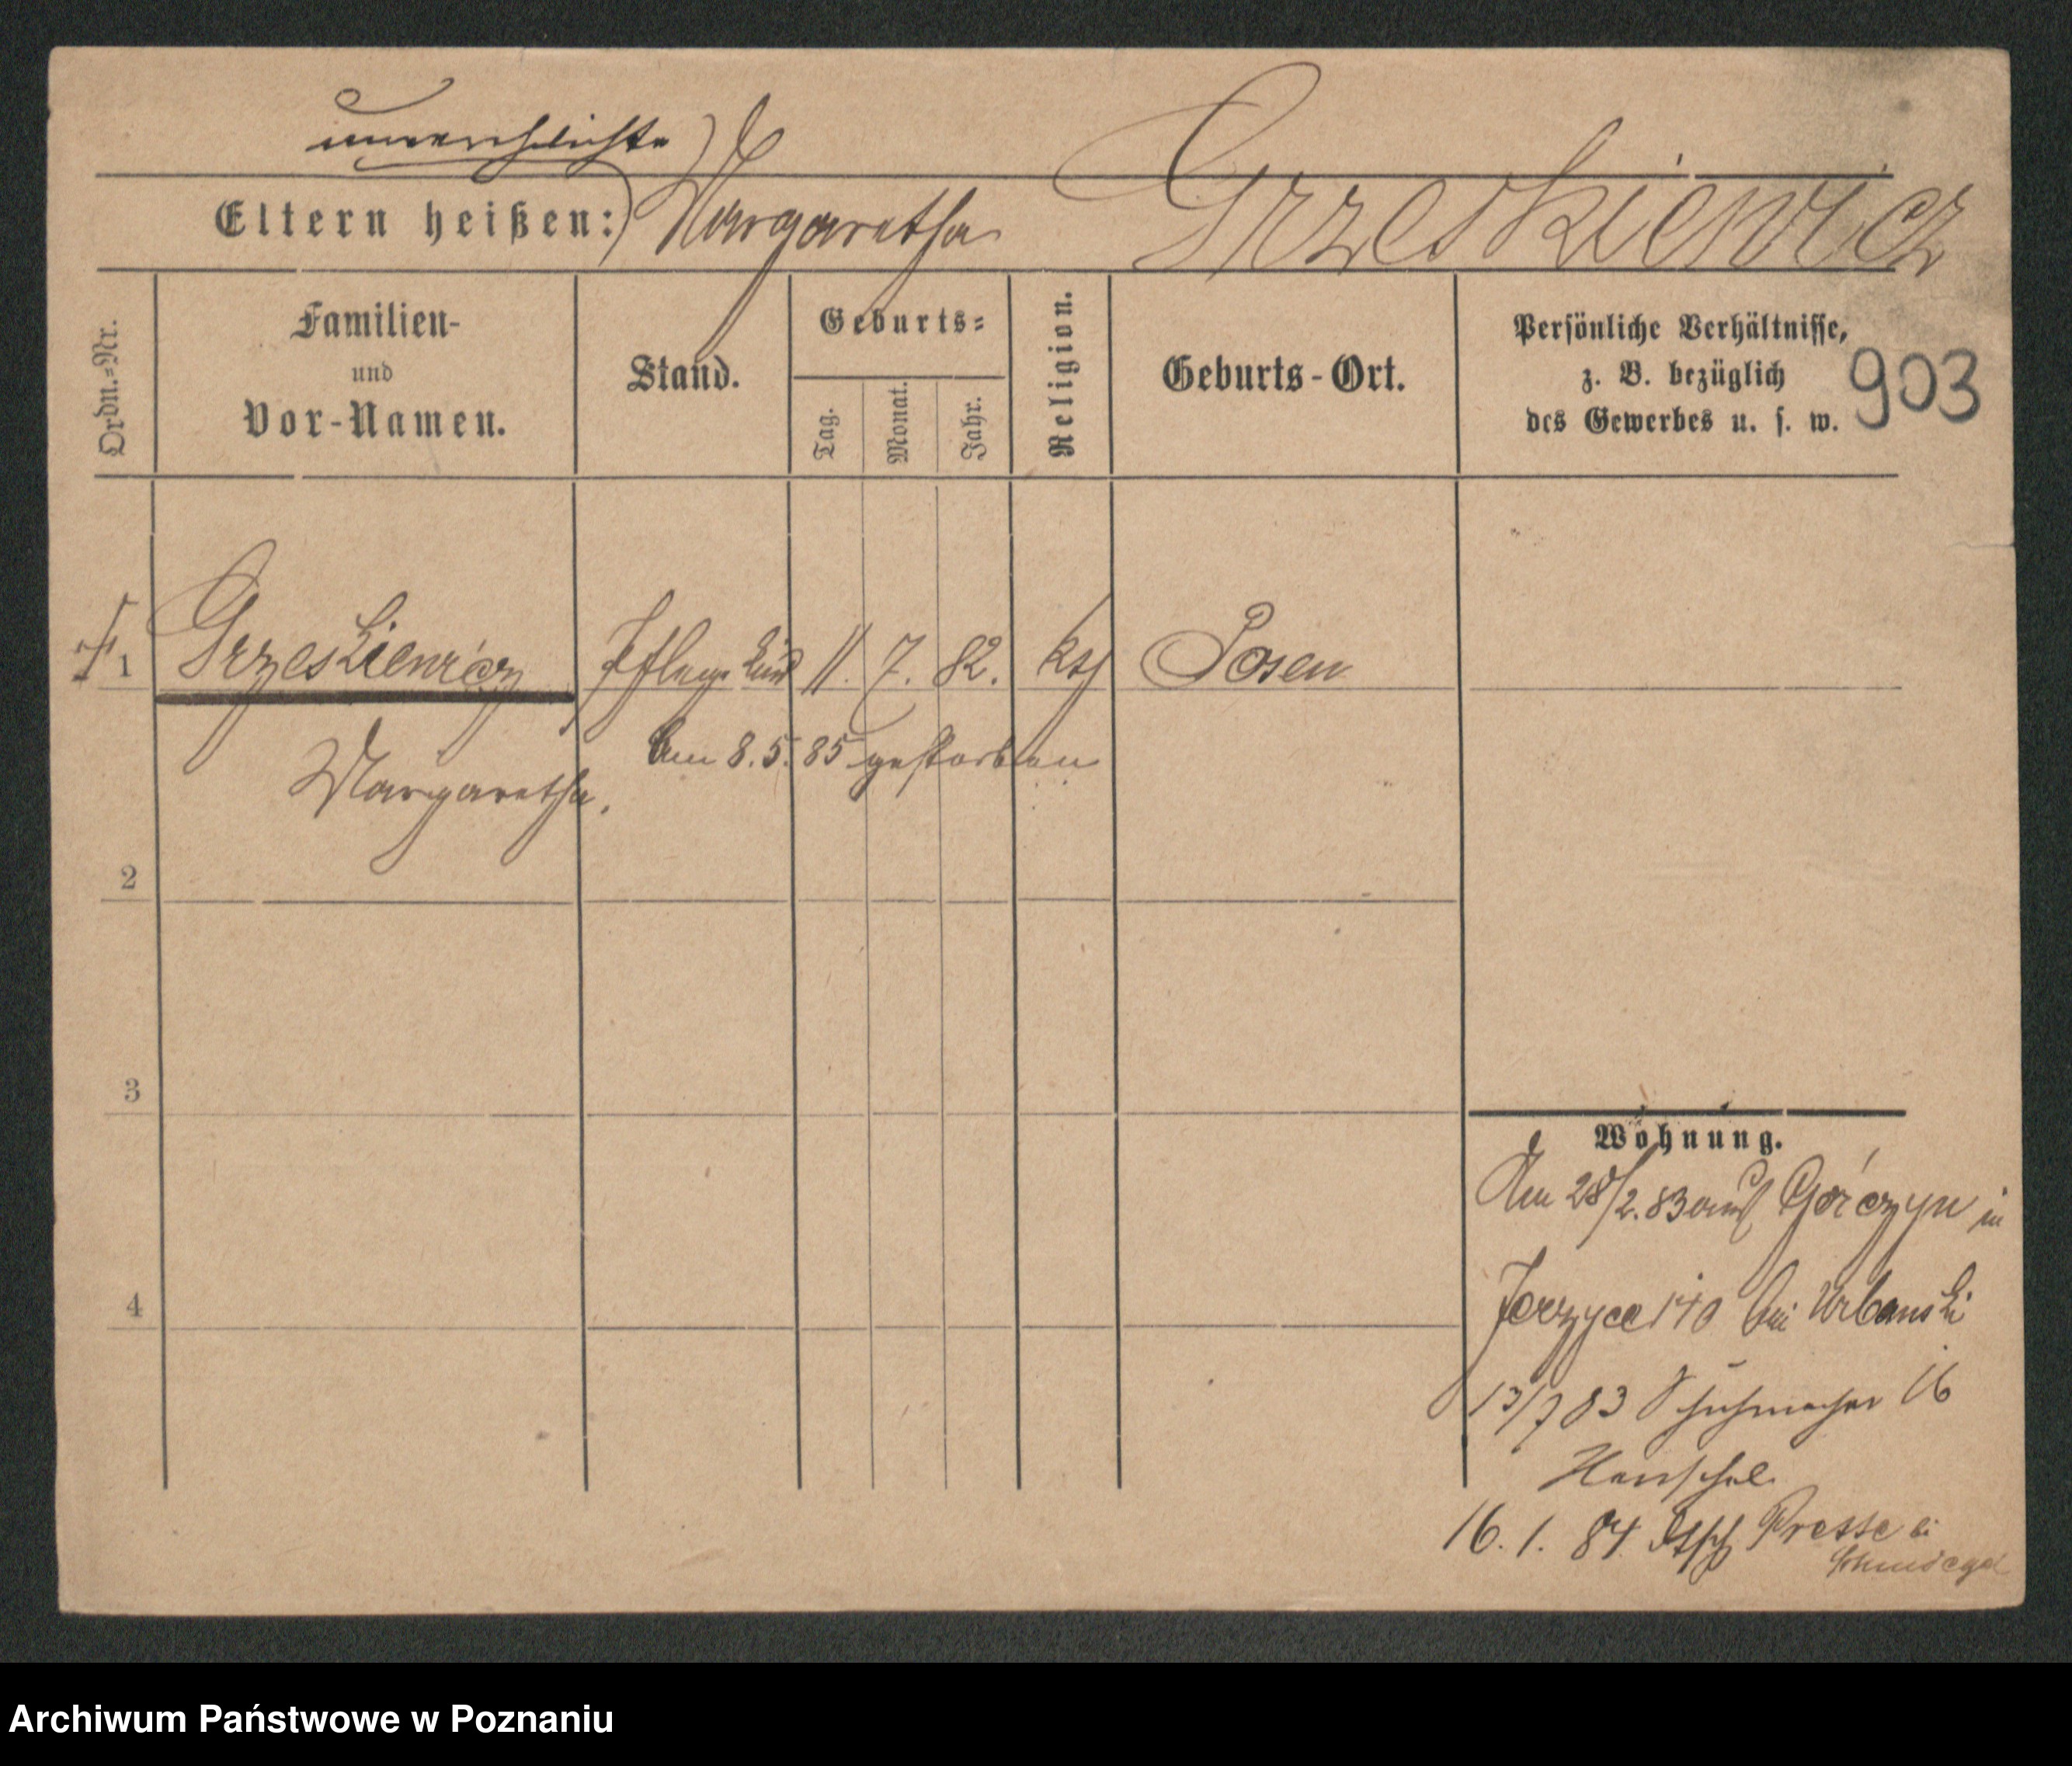 unverehelichte
Eltern heißen: Margaretha Grzeskiewicz
Ordn.=Nr.
Familien-
und
Vor-Namen.
Stand.
Geburts=
Tag.
Monat.
Jahr.
Religion.
Geburts-Ort.
Persönliche Verhältnisse,
z. B. bezüglich
des Gewerbes u. s. w.
903
1 Grzeskiewicz Pflegekind 11. 7. 82. kth Posen
Am 8. 5. 85 gestorben
Margaretha.
2
3
4
Wohnung.
Am 28/2. 83 auf Górczyn in
Jerzyce 140 bei Urbanski
13/7 83 Schuhmacher 16
Henschel
16. 1. 84. Presse bei
Archiwum Państwowe w Poznaniu